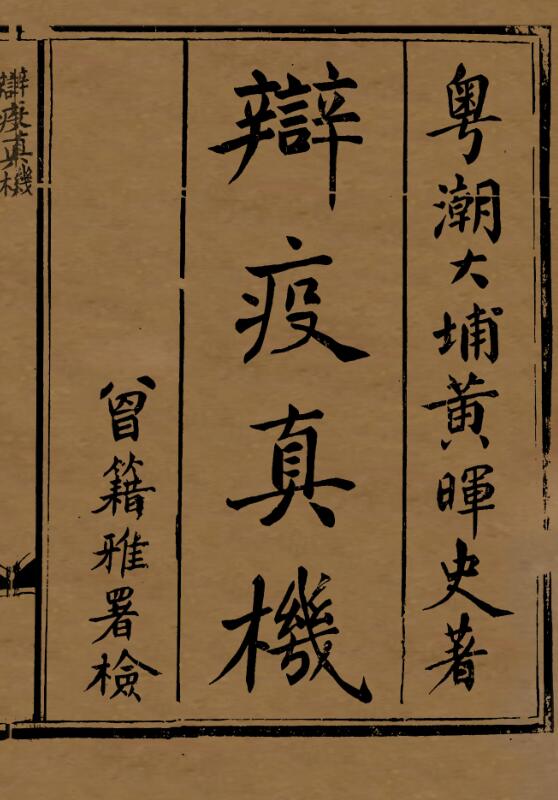 粤潮大埔黄暉史著
辯疫真機
曾籍雅署檢
辯疫真機